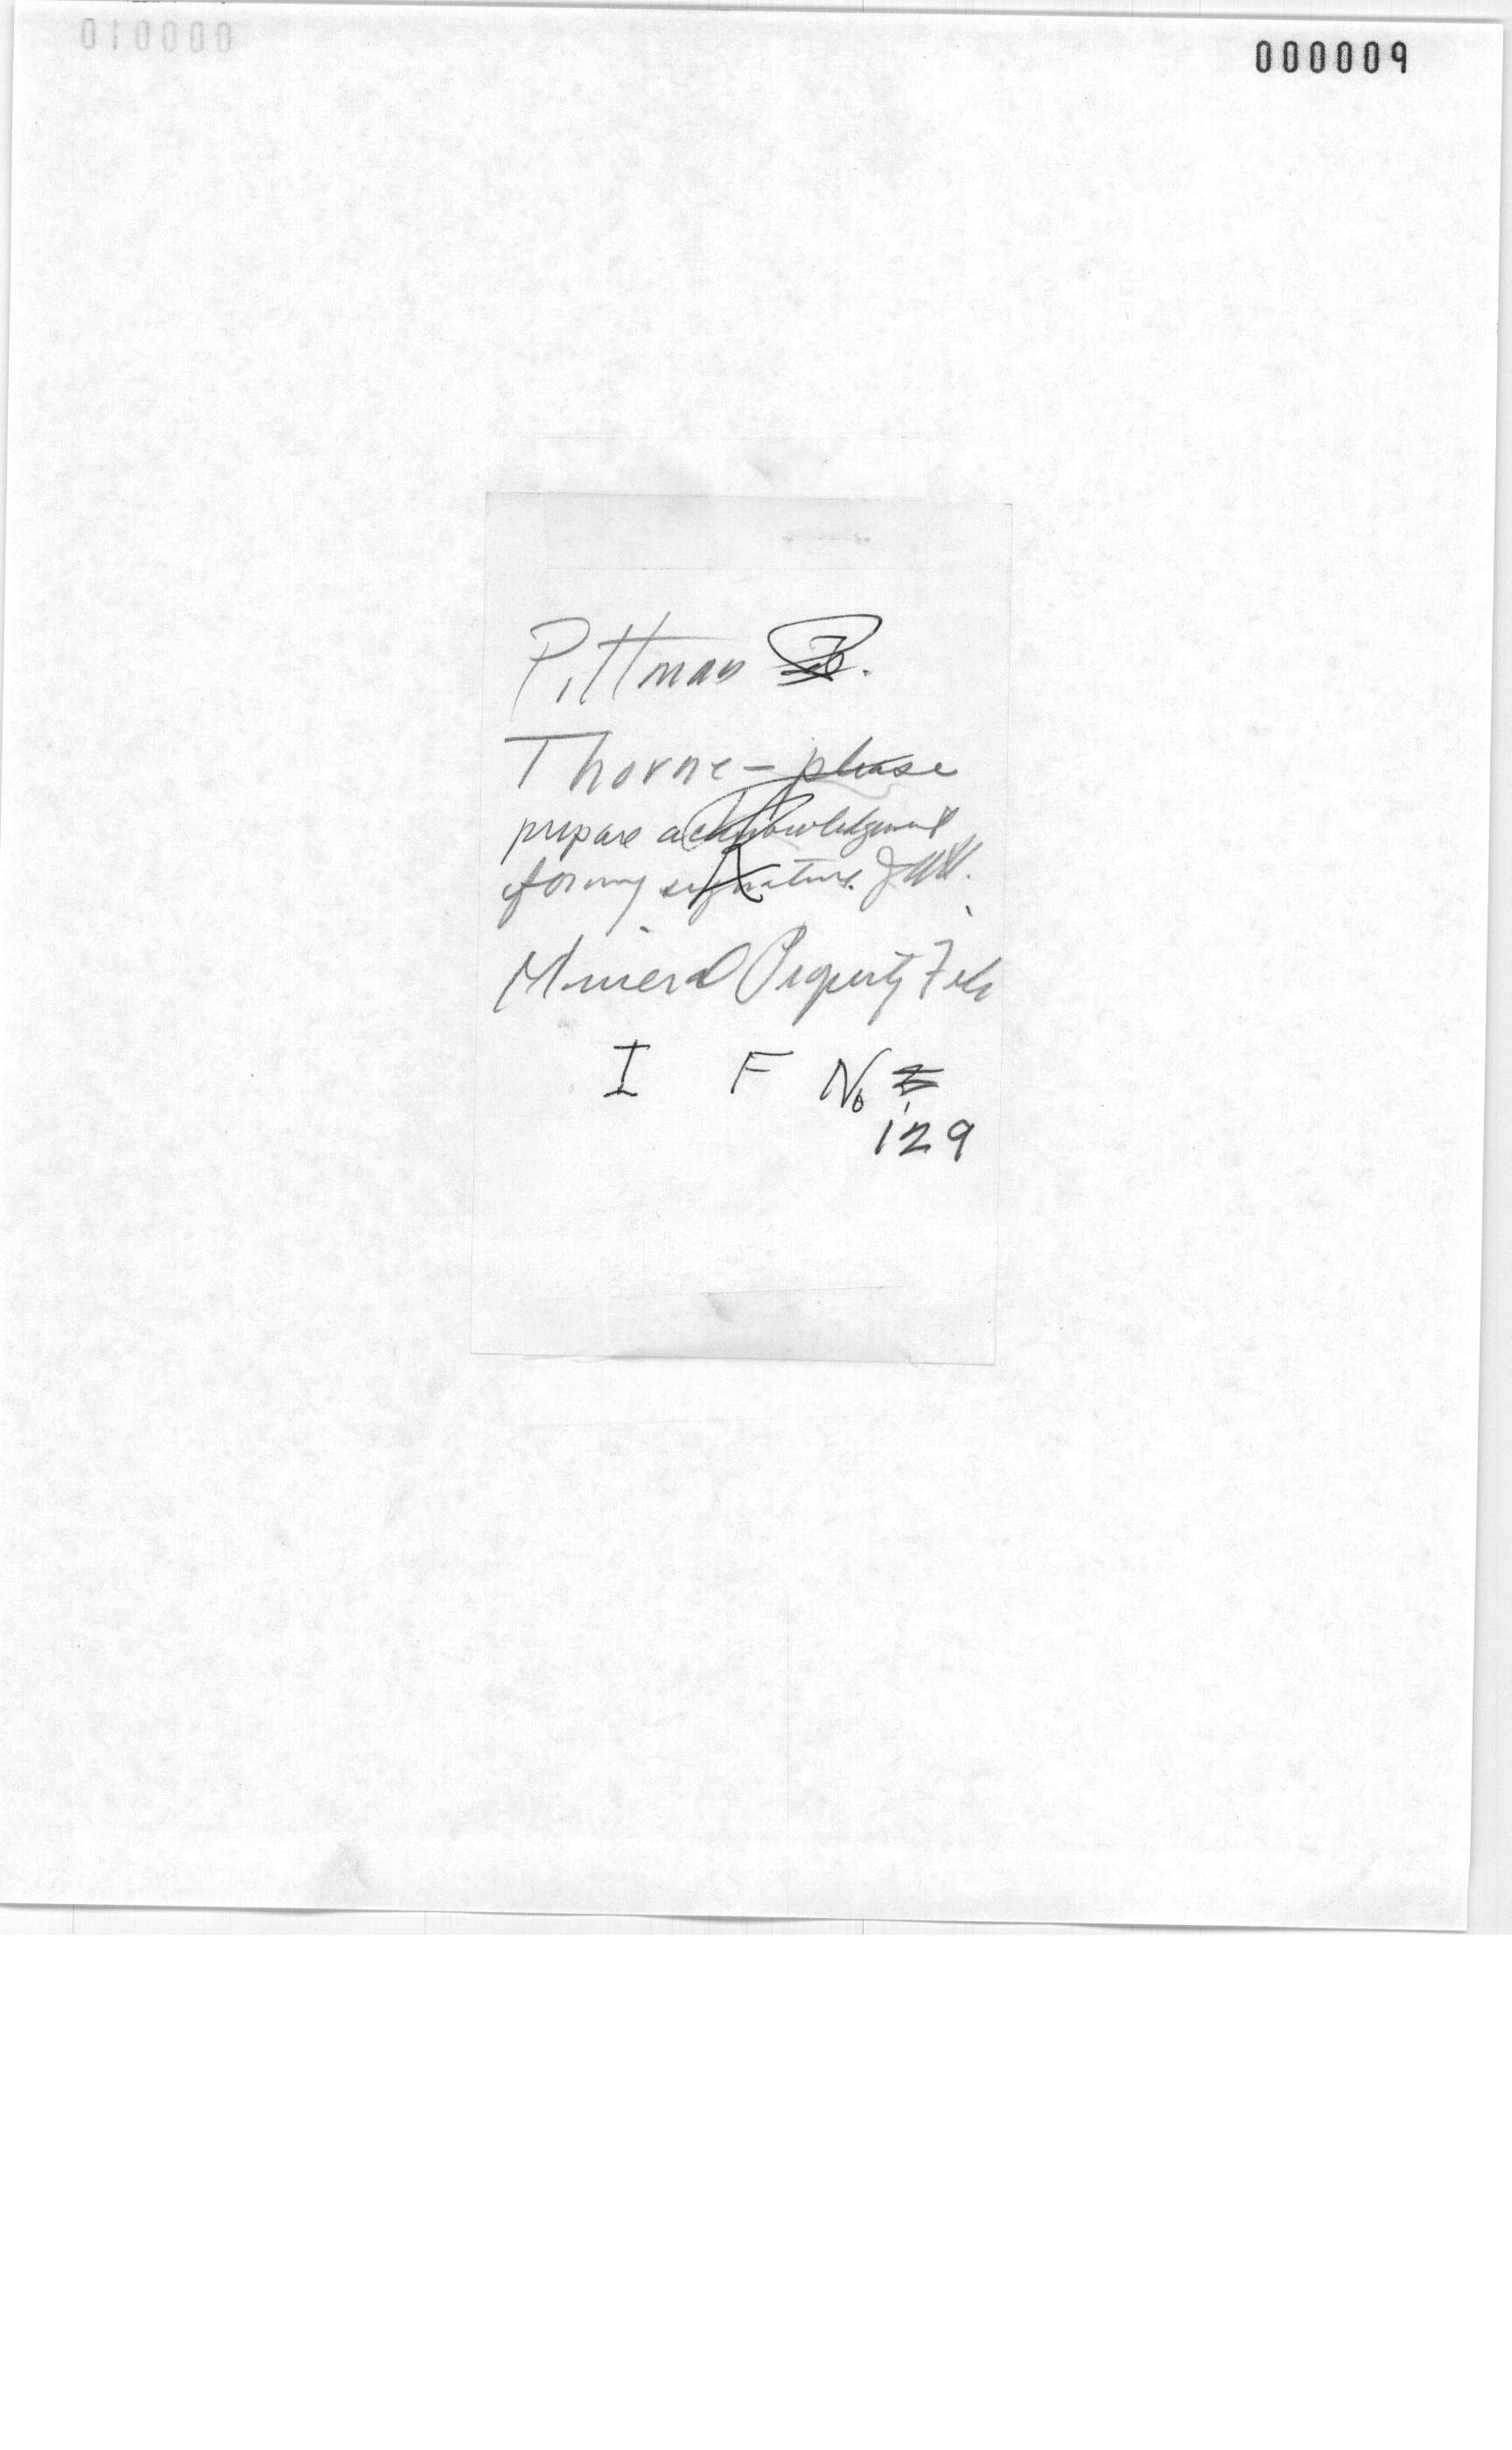 000010
000009
Pittman
Thorne – please
prepare acknowledgment
for my signature.
Mineral Property File
I F No
129